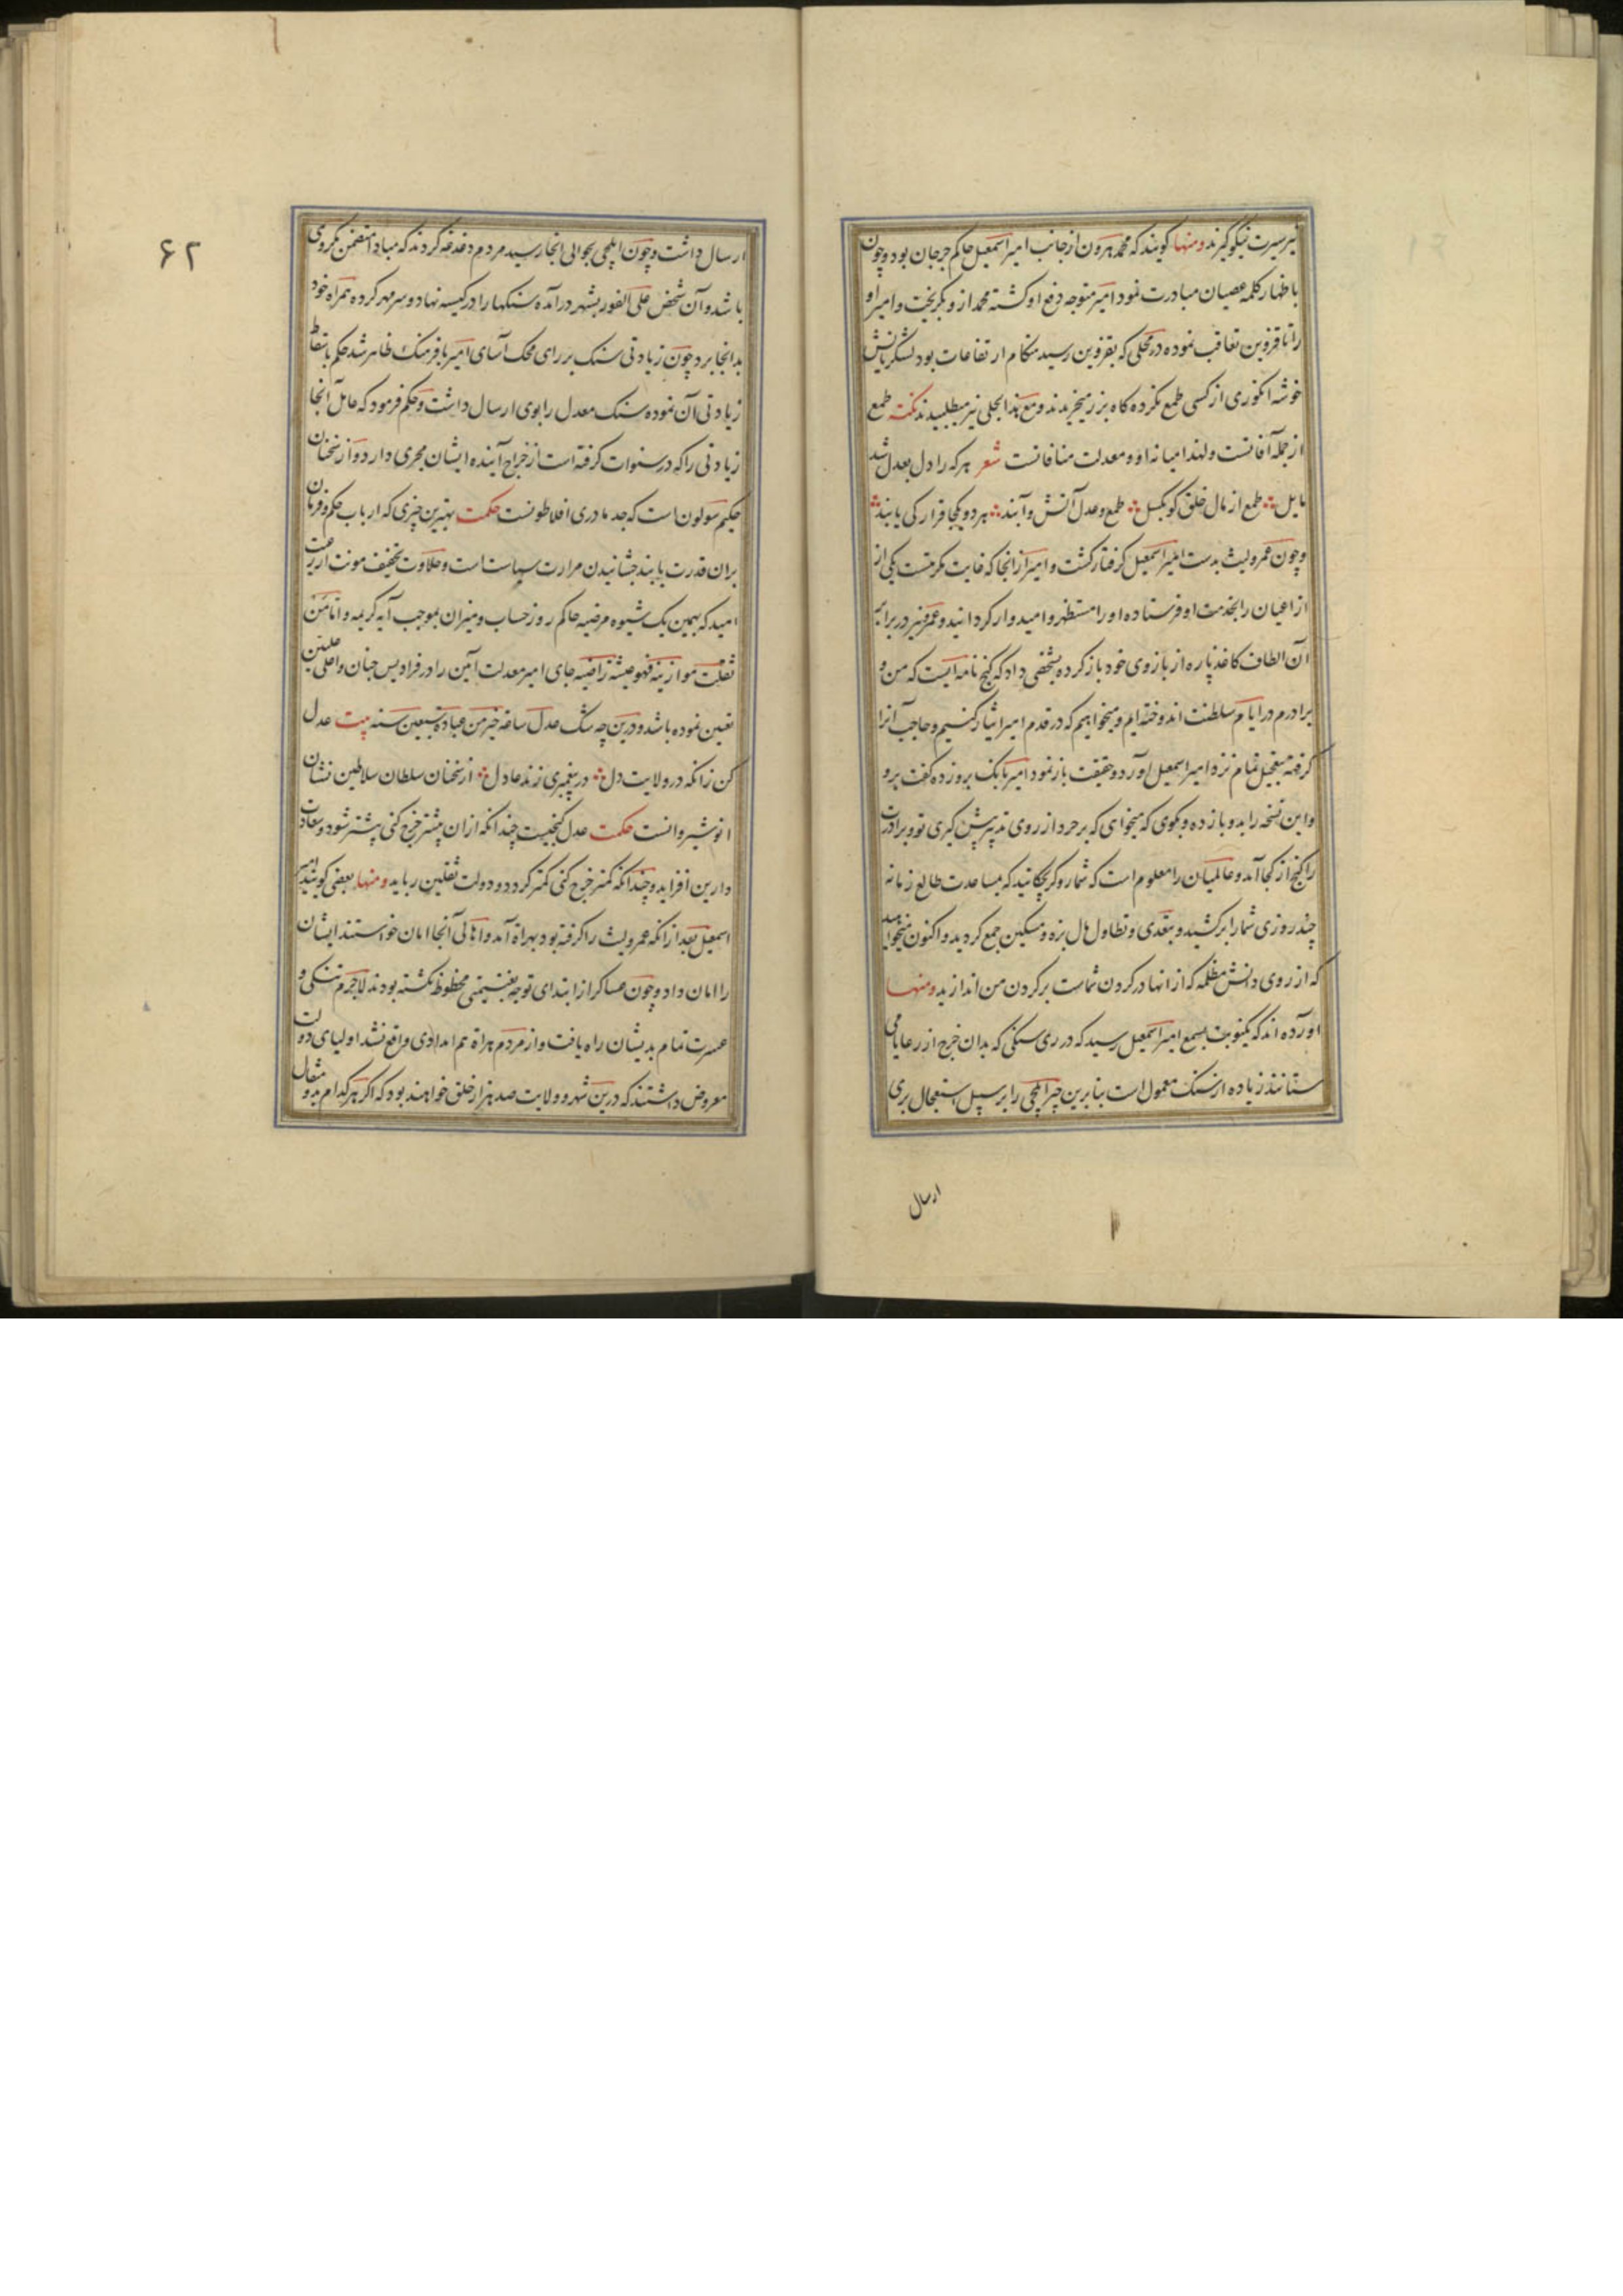 نیز سیرت نیکو گیرند ومنها گویند که محمد هرون از جانب امیر اسمعیل حاکم جرجان بود وچون
باظهار کلمه عصیان مبادرت نمود امیر متوجه دفع او کشته محمد ازو بکریخت وامیر او
را تا قزوین تعاقب نموده در محلی که بقزوین رسید هنکام ارتفاعات بود لشکریانش
خوشه انکوری از کسی طمع نکرده کاه بزر میخریدند ومع هذا بحلی نیز میطلبیدند نکته طمع
از جمله آفاتست ولهذا میانه او ومعدلت منافاتست شعر هرکه را دل بعدل شد
مایل طمع از مال خلق کو بکسل طمع وعدل آتش وآبند هر دو یکجا قرار کی یابند
وچون عمرولیث بدست امیر اسمعیل کرفتار کشت وامیر از انجا که غایت مکرمتست یکی از
از اعیان را بخدمت او فرستاده او را مستظهر وامیدوار کردانید وعمرو نیز در برابر
آن الطاف کاغذ پاره از بازوی خود باز کرده بشخصی داد که کنج نامه ایست که من و
برادرم در ایام سلطنت اندوخته ایم ومیخواهیم که در قدم امیر ایثار کنیم وحاجب آنرا
کرفته بتعجیل تمام نزد امیر اسمعیل آورد وحقیقت باز نمود امیر بانک برو زده کفت برو
واین نسخه را بدو باز ده وبکوی که میخواهی که بر خرد از روی تدبیر پیش کیری تو وبرادرت
را کنج از کجا آمد وعالمیان را معلوم است که شما رو کر بچکانید که بمساعدت طالع زمانه
چند روزی شما را بر کشید وبتعدی وتطاول مال بزه ومسکین جمع کردید واکنون میخواهید
که از روی دانش مظلمه که از انها در کردن شماست بر کردن من اندازید ومنها
آورده اند که یکنوبت بسمع امیر اسمعیل رسید که در ری سنکی که بدان خرج از رعایا می
ستانند زیاده از سنک معمول است بنابرین چیز ایلچی را بر سبیل استعجال بری
ارسال
۶۲
ارسال داشت وچون ایلچی بحوالی انجا رسید مردم دغدغه کردند که مبادا متضمن مکروهی
باشد وآن شخص علی الفور بشهر در آمده سنکها را در کیسه نهاد وسر مهر کرده همراه خود
بدانجا برد چون زیادتی سنک بر رای محک آسای امیر با فرهنک ظاهر شد حکم باسقاط
زیادتی آن نموده سنک معدل را بوی ارسال داشت وحکم فرمود که عامل آنجا
زیادتی را که در سنوات کرفته است از خراج آینده ایشان مجری دارد واز سخنان
حکیم سولون است که جد مادری افلاطونست حکمت بهترین چیزی که ارباب حکم وفرمان
بران قدرت یابند چشانیدن مرارت سیاست است وحلاوت تخفیف مونت از رعیت
امید که بهمین یک شیوه مرضیه حاکم روز حساب ومیزان بموجب آیه کریمه واما من
ثقلت موازینه فهو فی عیشة راضیه جای امیر معدلت آیین را در فرادیس جنان واعلی علیین
تعیین نموده باشد ودرین چه شک عدل ساعة خیر من عبادة سبعین سنه بیت عدل
کن زانکه در ولایت دل در پیغمبری زند عادل از سخنان سلطان سلاطین نشان
انوشیروانست حکمت عدل کنجیست چندانکه از ان بیشتر خرج کنی بیشتر شود وسعادت
دارین افزاید وچندانکه کمتر خرج کنی کمتر کردد ودولت ثقلین رباید ومنها بعضی کویند امیر
اسمعیل بعد از انکه عمرولیث را کرفته بود بهراة آمد واهالی آنجا امان خواستند ایشان
را امان داد وچون عساکر از ابتدای توجه بغنیمتی محظوظ نکشته بودند لاجرم تنکی و
عسرت تمام بدیشان راه یافت واز مردم هراة هم امدادی واقع نشد اولیای دولت
معروض داشتند که درین شهر وولایت صد هزار خلق خواهند بود که اکر هر کدام بدو مثقال